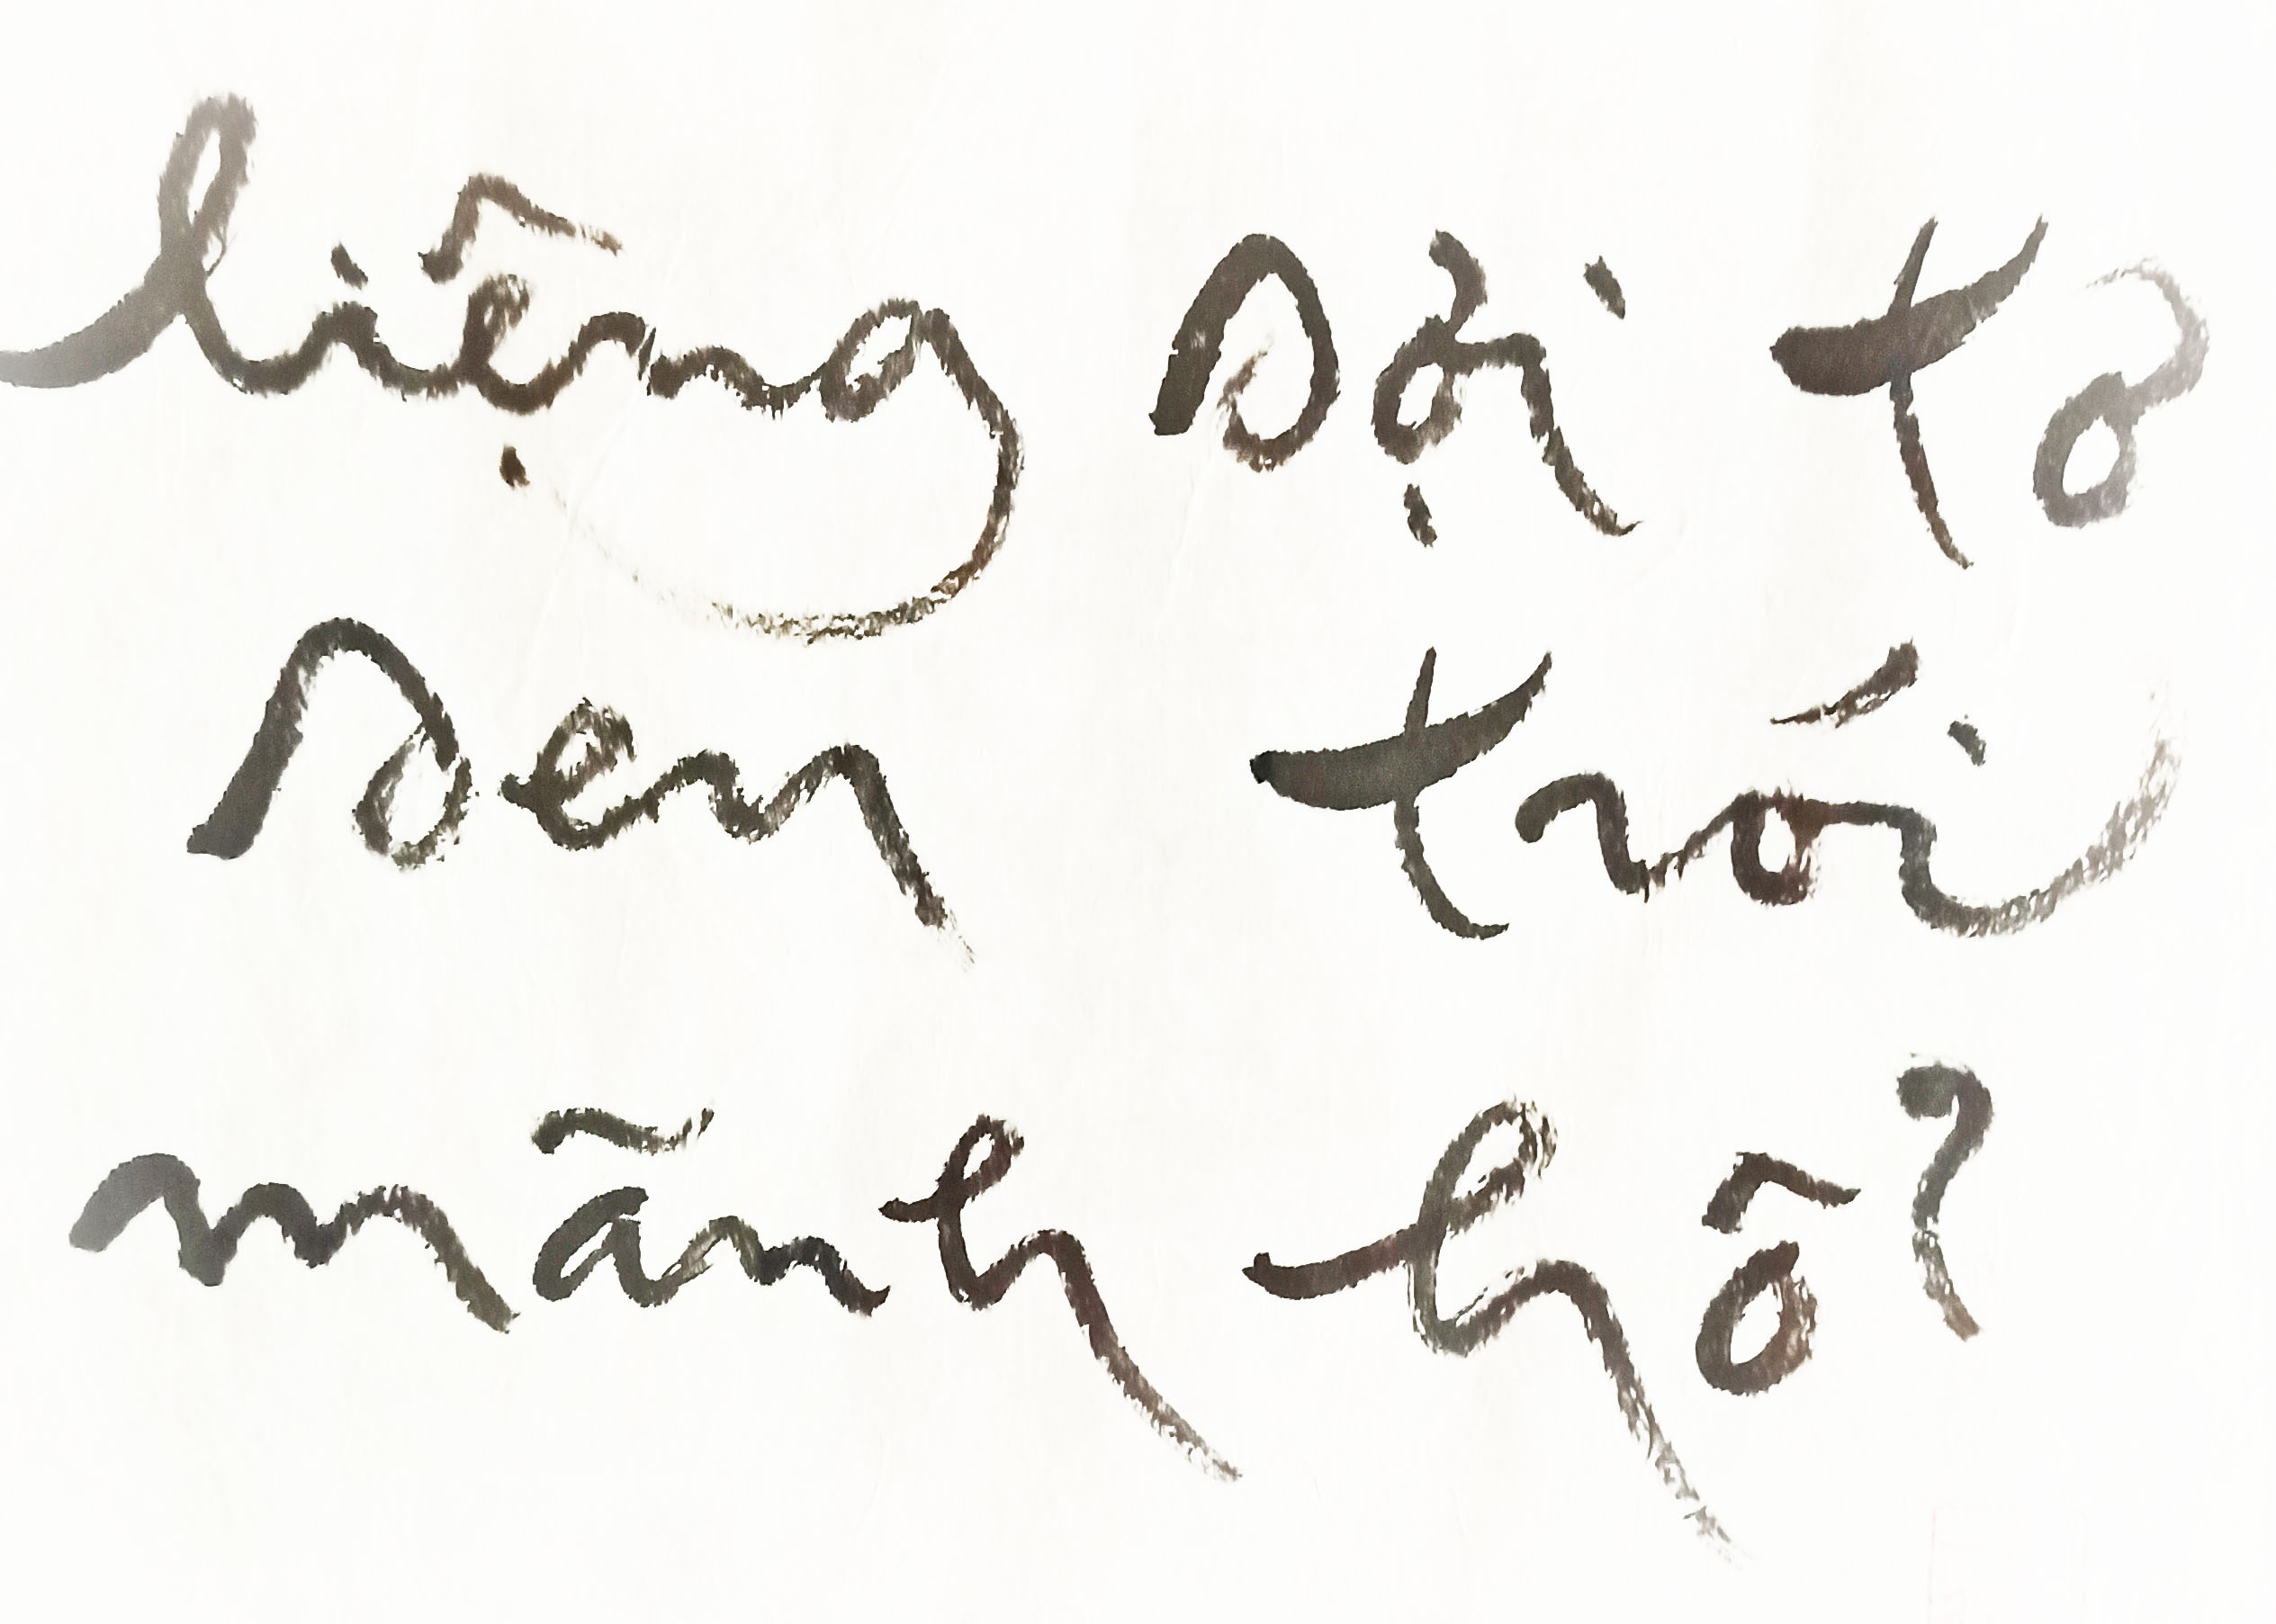 liệng sợi tơ
sen trói
mãnh hổ